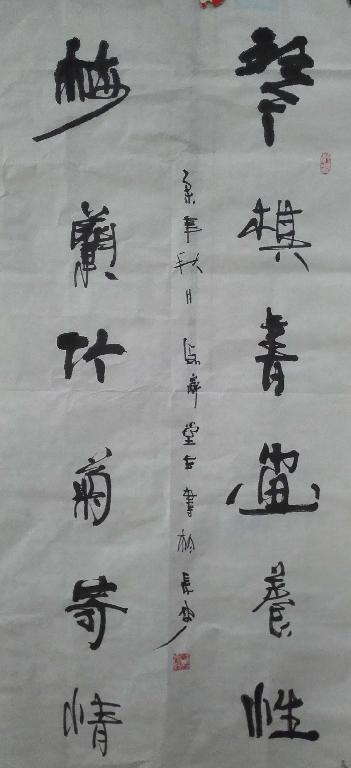 琴棋書畫養性
梅蘭竹菊寄情
年秋日 堂 書 長